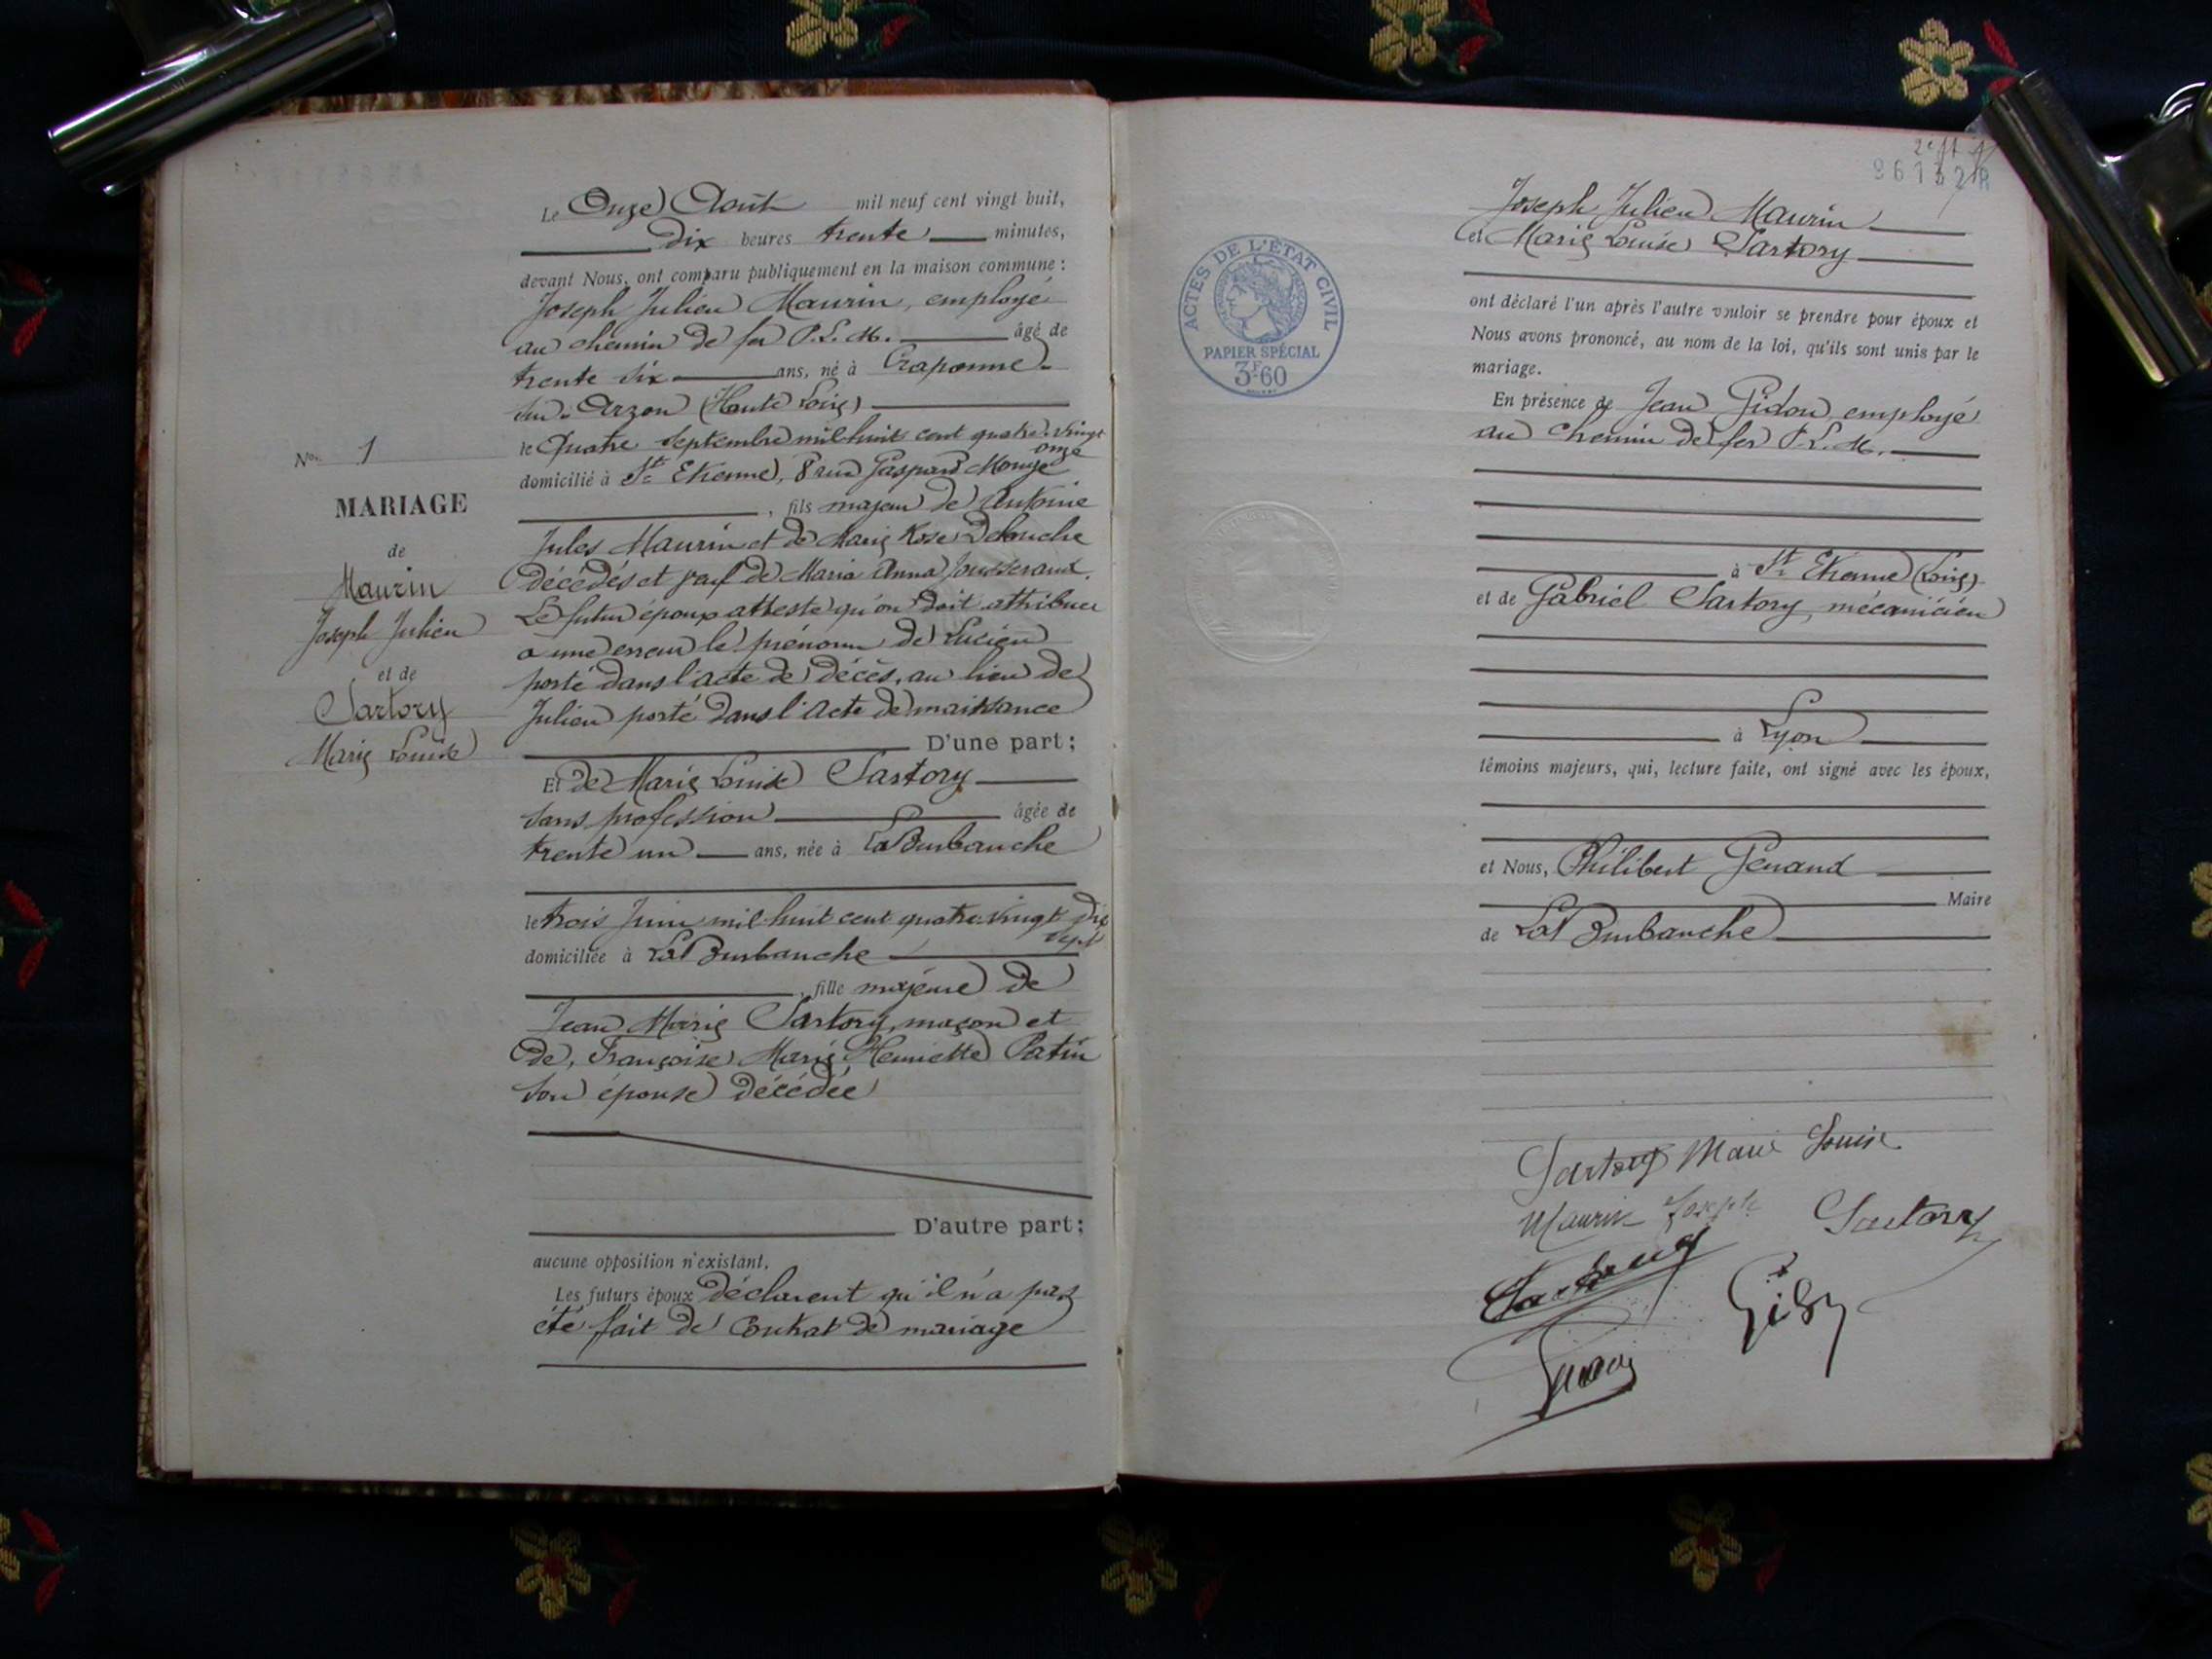 Le Onze Août mil neuf cent vingt huit,
dix heures trente minutes,
devant Nous, ont comparu publiquement en la maison commune :
Joseph Julien Maurin, employé
au chemin de fer P.L.M. âgé de
trente six ans, né à Craponne-
sur-Arzon (Haute Loire)
le Quatre Septembre mil huit cent quatre-vingt
onze
domicilié à St Etienne, 8 rue Gaspard Monge
, fils majeur de Antoine
Jules Maurin et de Marie Rose Delouche
décédés et veuf de Maria Anna Jousserand.
Le futur époux atteste qu'on doit attribuer
a une erreur le prénom de Lucien
porté dans l'acte de décès, au lieu de
Julien porté dans l'acte de naissance
D'une part ;
No. 1
MARIAGE
de
Maurin
Joseph Julien
et de
Sartory
Marie Louise
Et de Marie Louise Sartory
sans profession âgée de
trente un ans, née à La Burbanche
le trois Juin mil huit cent quatre-vingt dix
sept
domiciliée à La Burbanche
, fille majeure de
Jean Marie Sartory, maçon et
de, Françoise Marie Henriette Patin
son épouse décédée
D'autre part ;
aucune opposition n'existant.
Les futurs époux déclarent qu'il n'a pas
été fait de contrat de mariage
Joseph Julien Maurin
et Marie Louise Sartory
ACTES DE L'ÉTAT CIVIL
PAPIER SPÉCIAL
3F60
ont déclaré l'un après l'autre vouloir se prendre pour époux et
Nous avons prononcé, au nom de la loi, qu'ils sont unis par le
mariage.
En présence de Jean Gidon, employé
au chemin de fer P.L.M.
à St Etienne (Loire)
et de Gabriel Sartory, mécanicien
à Lyon
témoins majeurs, qui, lecture faite, ont signé avec les époux,
et Nous, Philibert Genand
Maire
de La Burbanche
Sartory Marie Louise
Maurin Joseph Sartory
Sartory
Gidon